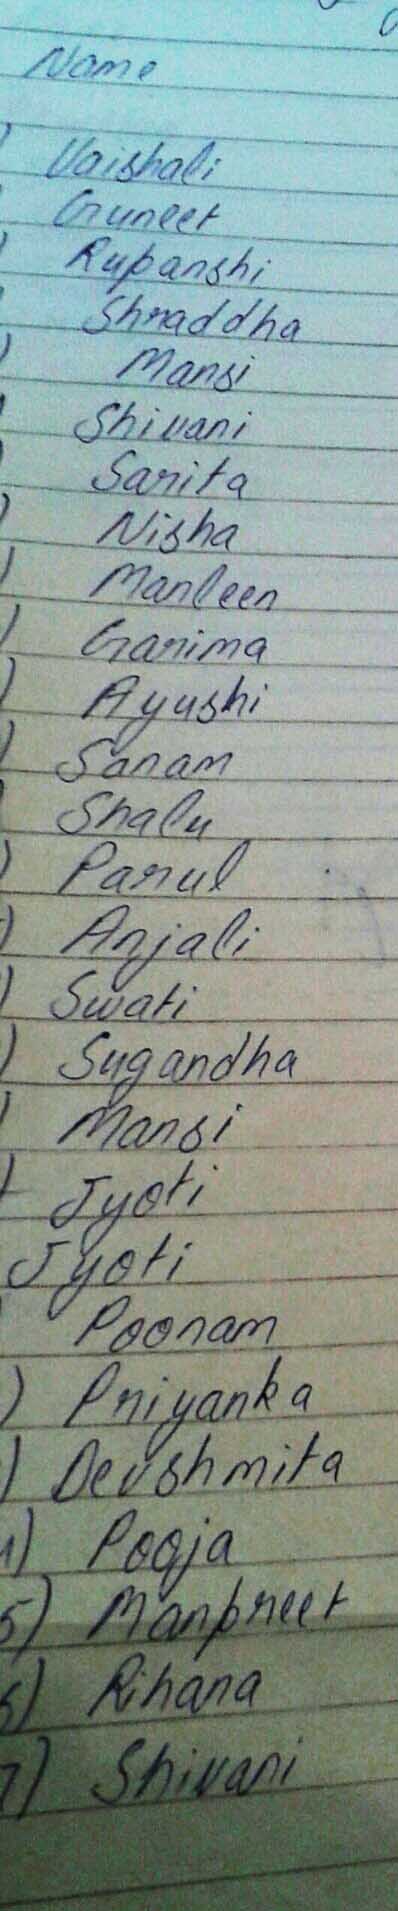 Name
) Vaishali
Guneet
) Rupanshi
Shraddha
) Mansi
Shivani
) Sarita
) Nisha
) Manleen
) Garima
) Ayushi
) Sanam
Shalu
) Parul
) Anjali
) Swati
) Sugandha
) Mansi
) Jyoti
Jyoti
Poonam
) Priyanka
) Devshmita
) Pooja
5) Manpreet
6) Rihana
7) Shivani